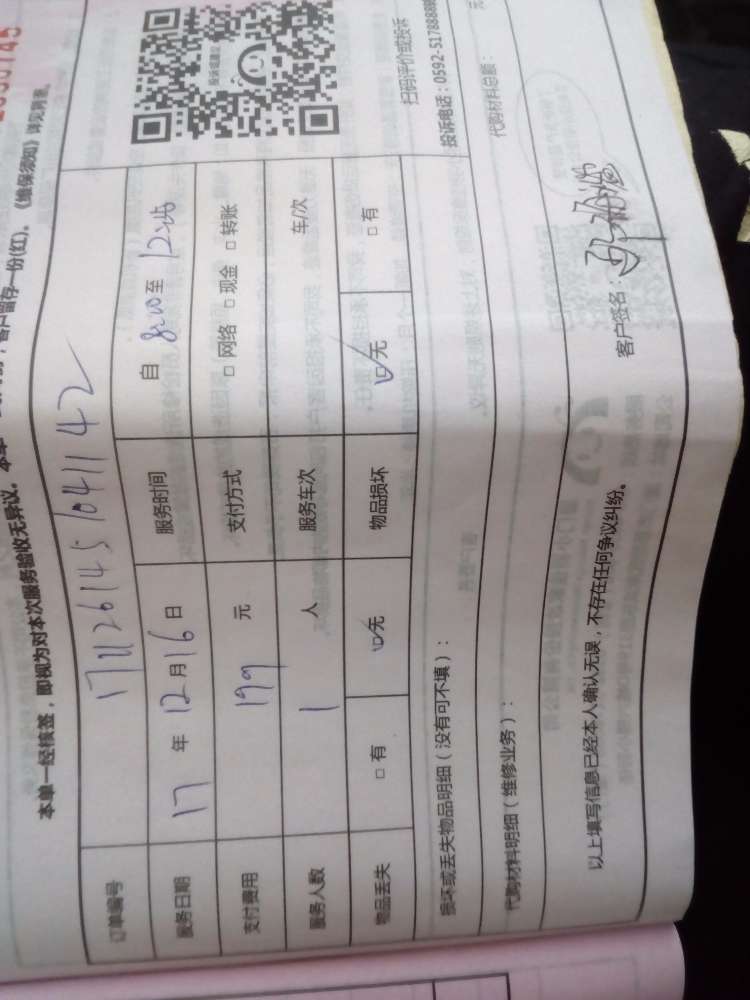 本单一经核签，即视为对本次服务验收无异议。
客户留存一份(红)。《维保须知》详见背面。
订单编号 1711261451041142
服务日期 17 年 12 月 16 日 服务时间 自 8:00 至 12:
支付费用 199 元 支付方式 □ 网络 □ 现金 □ 转账
服务人数 1 人 服务车次 车/次
物品丢失 □ 有 ☑ 无 物品损坏 ☑ 无 □ 有
投诉或建议
扫码评价或投诉
投诉电话：0592-5178888
损坏或丢失物品明细（没有可不填）：
代购材料明细（维修业务）： 代购材料总额： 元
以上填写信息已经本人确认无误，不存在任何争议纠纷。
客户签名：